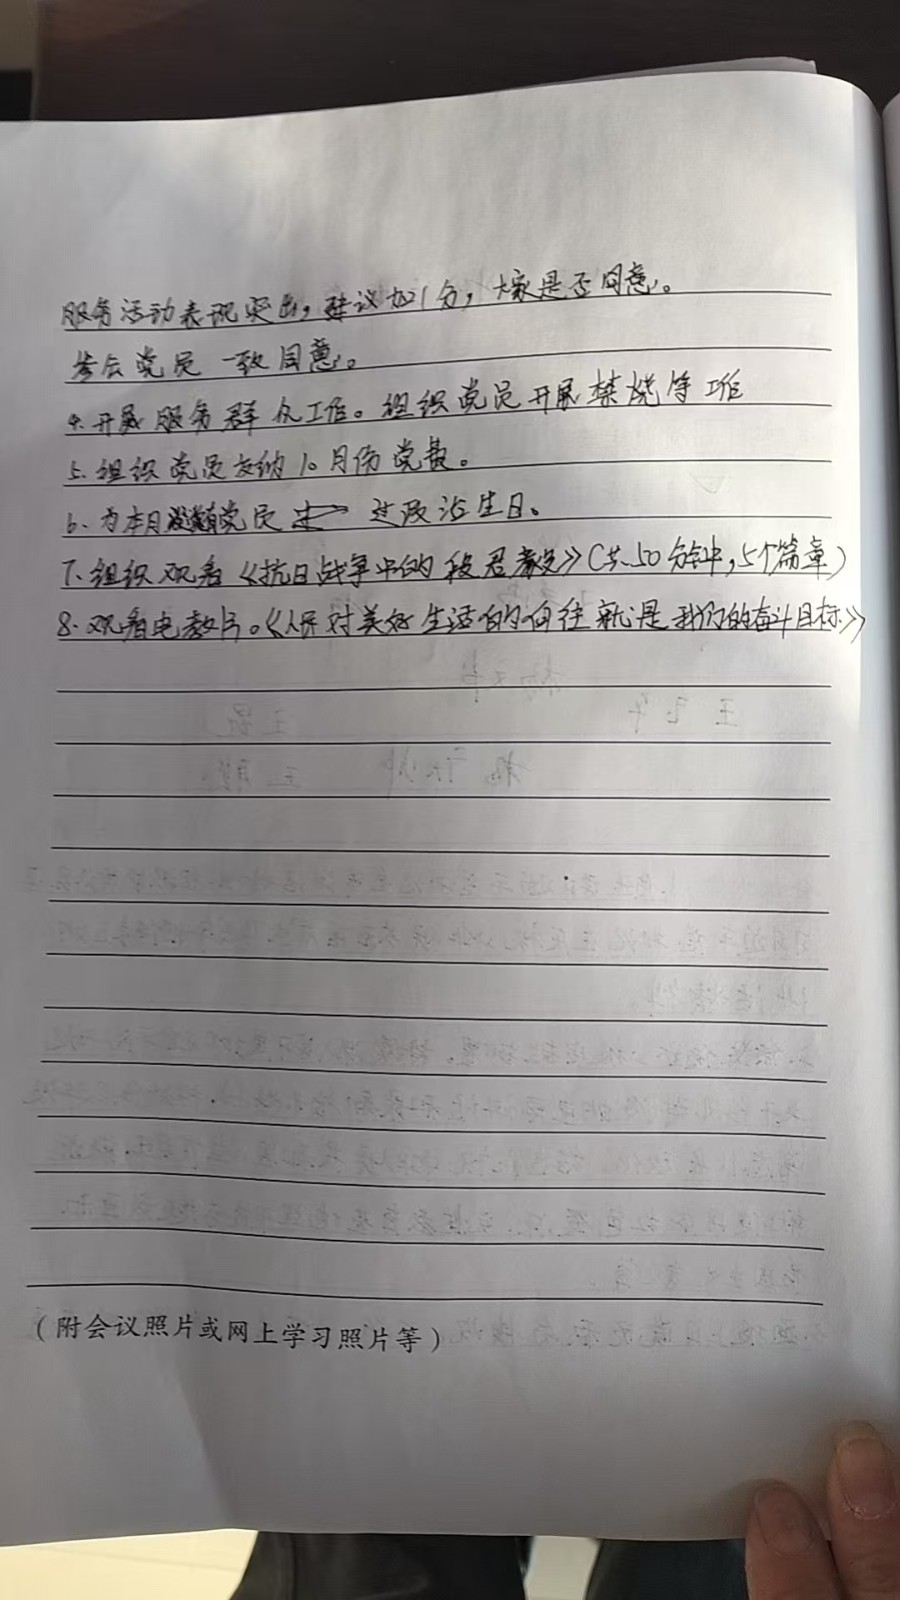 服务活动表现突出，建议加1分，大家是否同意。
参会党员一致同意。
4.开展服务群众工作。组织党员开展禁烧等工作
5.组织党员交纳10月份党费。
6、为本月党员过政治生日。
7.组织观看《抗日战争中的》（共50分钟，5个篇章）
8.观看电教片。《人民对美好生活的向往就是我们的奋斗目标》
（附会议照片或网上学习照片等）